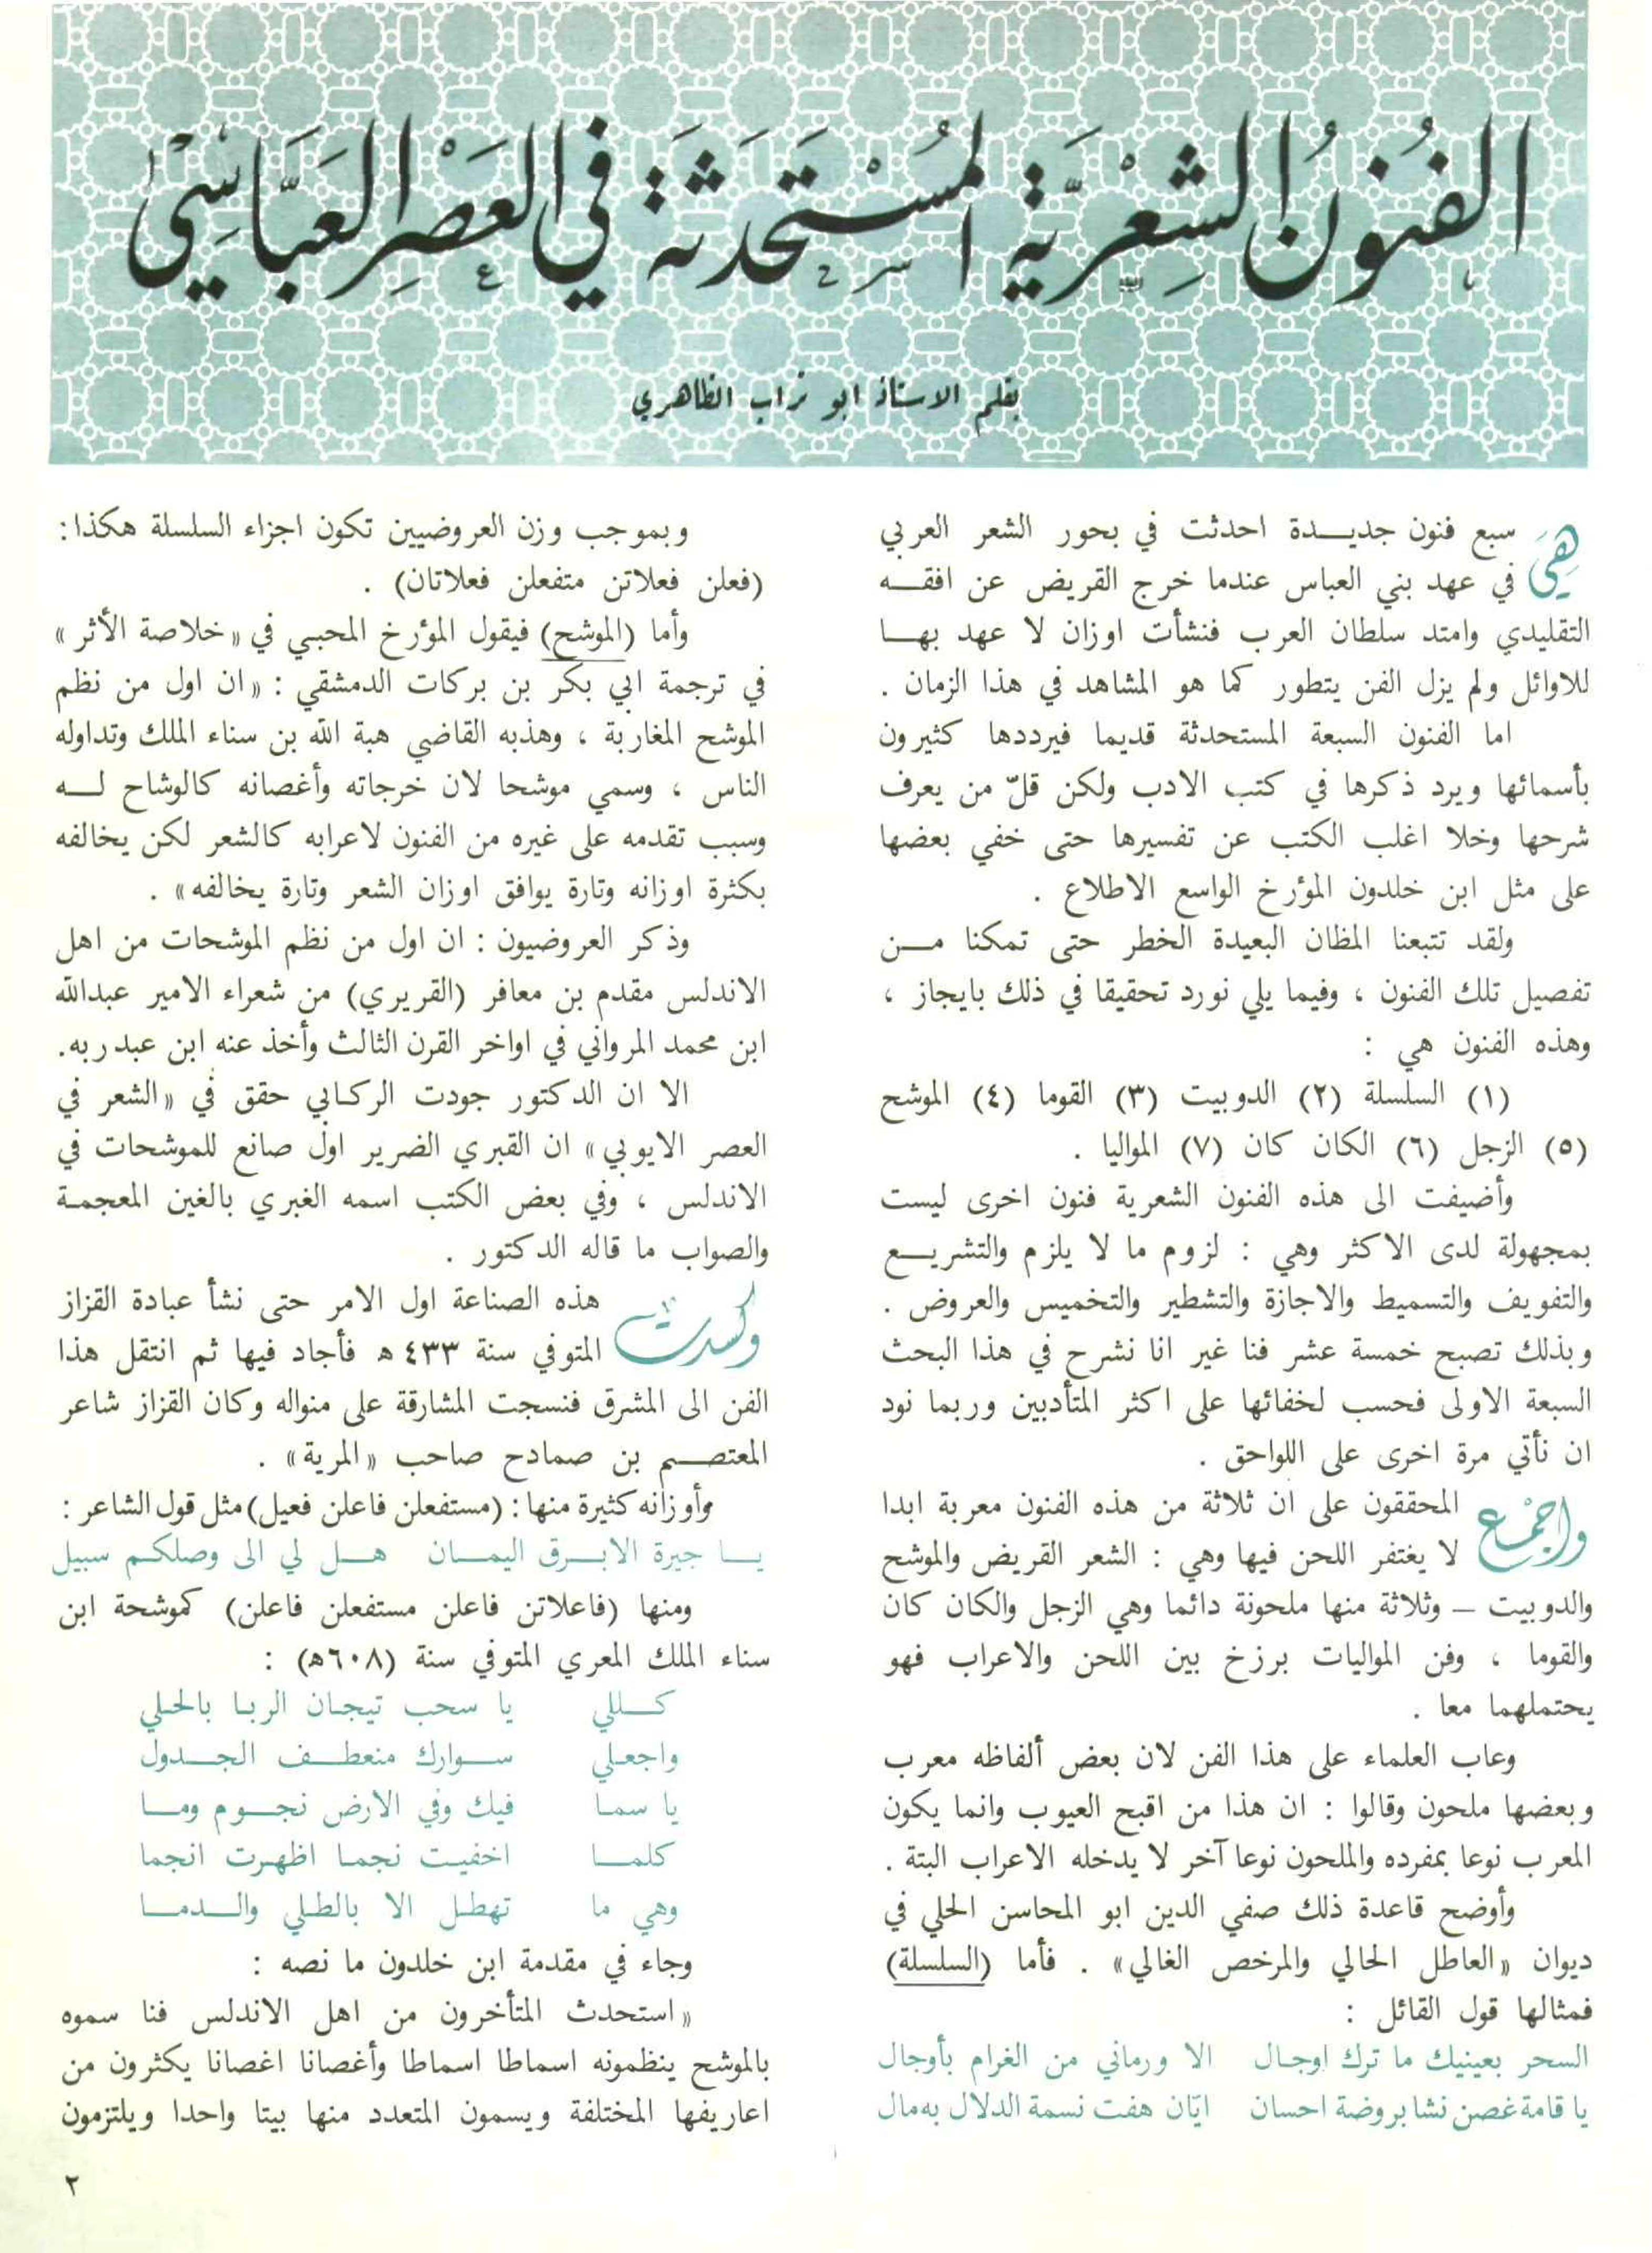 الفُنُونُ الشِعْرِيَّة المُسْتَحدَثَة في العَصْرِ العَبَّاسِيّ
بقلم الاستاذ ابو تراب الظاهري
هِيَ سبع فنون جديدة احدثت في بحور الشعر العربي
في عهد بني العباس عندما خرج القريض عن افقه
التقليدي وامتد سلطان العرب فنشأت اوزان لا عهد بها
للاوائل ولم يزل الفن يتطور كما هو المشاهد في هذا الزمان .
اما الفنون السبعة المستحدثة قديما فيرددها كثيرون
بأسمائها ويرد ذكرها في كتب الادب ولكن قلّ من يعرف
شرحها وخلا اغلب الكتب عن تفسيرها حتى خفي بعضها
على مثل ابن خلدون المؤرخ الواسع الاطلاع .
ولقد تتبعنا المظان البعيدة الخطر حتى تمكنا من
تفصيل تلك الفنون ، وفيما يلي نورد تحقيقا في ذلك بايجاز ،
وهذه الفنون هي :
(١) السلسلة (٢) الدوبيت (٣) القوما (٤) الموشح
(٥) الزجل (٦) الكان كان (٧) المواليا .
وأضيفت الى هذه الفنون الشعرية فنون اخرى ليست
بمجهولة لدى الاكثر وهي : لزوم ما لا يلزم والتشريع
والتفويف والتسميط والاجازة والتشطير والتخميس والعروض .
وبذلك تصبح خمسة عشر فنا غير انا نشرح في هذا البحث
السبعة الاولى فحسب لخفائها على اكثر المتأدبين وربما نود
ان نأتي مرة اخرى على اللواحق .
واجْمع المحققون على ان ثلاثة من هذه الفنون معربة ابدا
لا يغتفر اللحن فيها وهي : الشعر القريض والموشح
والدوبيت – وثلاثة منها ملحونة دائما وهي الزجل والكان كان
والقوما ، وفن المواليات برزخ بين اللحن والاعراب فهو
يحتملهما معا .
وعاب العلماء على هذا الفن لان بعض ألفاظه معرب
وبعضها ملحون وقالوا : ان هذا من اقبح العيوب وانما يكون
المعرب نوعا بمفرده والملحون نوعا آخر لا يدخله الاعراب البتة .
وأوضح قاعدة ذلك صفي الدين ابو المحاسن الحلي في
ديوان «العاطل الحالي والمرخص الغالي» . فأما (السلسلة)
فمثالها قول القائل :
السحر بعينيك ما ترك اوجال الا ورماني من الغرام بأوجال
يا قامة غصن نشا بروضة احسان ايّان هفت نسمة الدلال به مال
وبموجب وزن العروضيين تكون اجزاء السلسلة هكذا :
(فعلن فعلاتن متفعلن فعلاتان) .
وأما (الموشح) فيقول المؤرخ المحبي في «خلاصة الأثر»
في ترجمة ابي بكر بن بركات الدمشقي : «ان اول من نظم
الموشح المغاربة ، وهذبه القاضي هبة الله بن سناء الملك وتداوله
الناس ، وسمي موشحا لان خرجاته وأغصانه كالوشاح له
وسبب تقدمه على غيره من الفنون لاعرابه كالشعر لكن يخالفه
بكثرة اوزانه وتارة يوافق اوزان الشعر وتارة يخالفه» .
وذكر العروضيون : ان اول من نظم الموشحات من اهل
الاندلس مقدم بن معافر (القريري) من شعراء الامير عبدالله
ابن محمد المرواني في اواخر القرن الثالث وأخذ عنه ابن عبد ربه.
الا ان الدكتور جودت الركابي حقق في «الشعر في
العصر الايوبي» ان القبري الضرير اول صانع للموشحات في
الاندلس ، وفي بعض الكتب اسمه الغبري بالغين المعجمة
والصواب ما قاله الدكتور .
وكسدت هذه الصناعة اول الامر حتى نشأ عبادة القزاز
المتوفي سنة ٤٣٣ ه فأجاد فيها ثم انتقل هذا
الفن الى المشرق فنسجت المشارقة على منواله وكان القزاز شاعر
المعتصم بن صمادح صاحب «المرية» .
وأوزانه كثيرة منها : (مستفعلن فاعلن فعيل) مثل قول الشاعر :
يا جيرة الابرق اليمان هل لي الى وصلكم سبيل
ومنها (فاعلاتن فاعلن مستفعلن فاعلن) كموشحة ابن
سناء الملك المعري المتوفي سنة (٦٠٨ه) :
كللي يا سحب تيجان الربا بالحلي
واجعلي سوارك منعطف الجدول
يا سما فيك وفي الارض نجوم وما
كلما اخفيت نجما اظهرت انجما
وهي ما تهطل الا بالطلي والدما
وجاء في مقدمة ابن خلدون ما نصه :
«استحدث المتأخرون من اهل الاندلس فنا سموه
بالموشح ينظمونه اسماطا اسماطا وأغصانا اغصانا يكثرون من
اعاريفها المختلفة ويسمون المتعدد منها بيتا واحدا ويلتزمون
٢